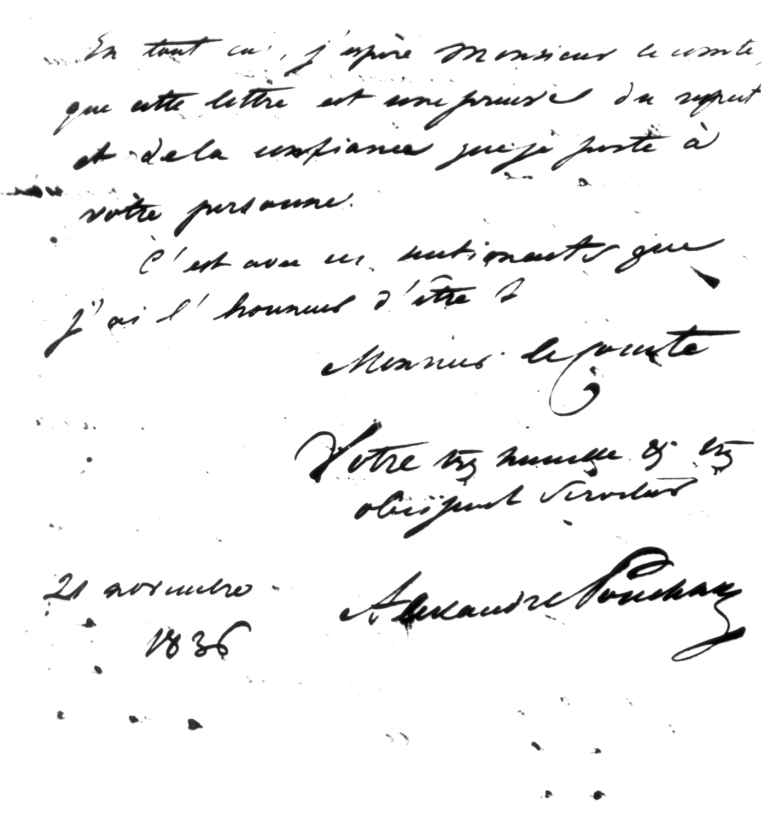 En tout cas, j'espère Monsieur le comte,
que cette lettre est une preuve du respect
et de la confiance que je porte à
votre personne.
C'est avec ces sentiments que
j'ai l'honneur d'être
Monsieur le Comte
Votre très humble & très
obéissant serviteur
21 novembre
Alexandre Pouchkin
1836